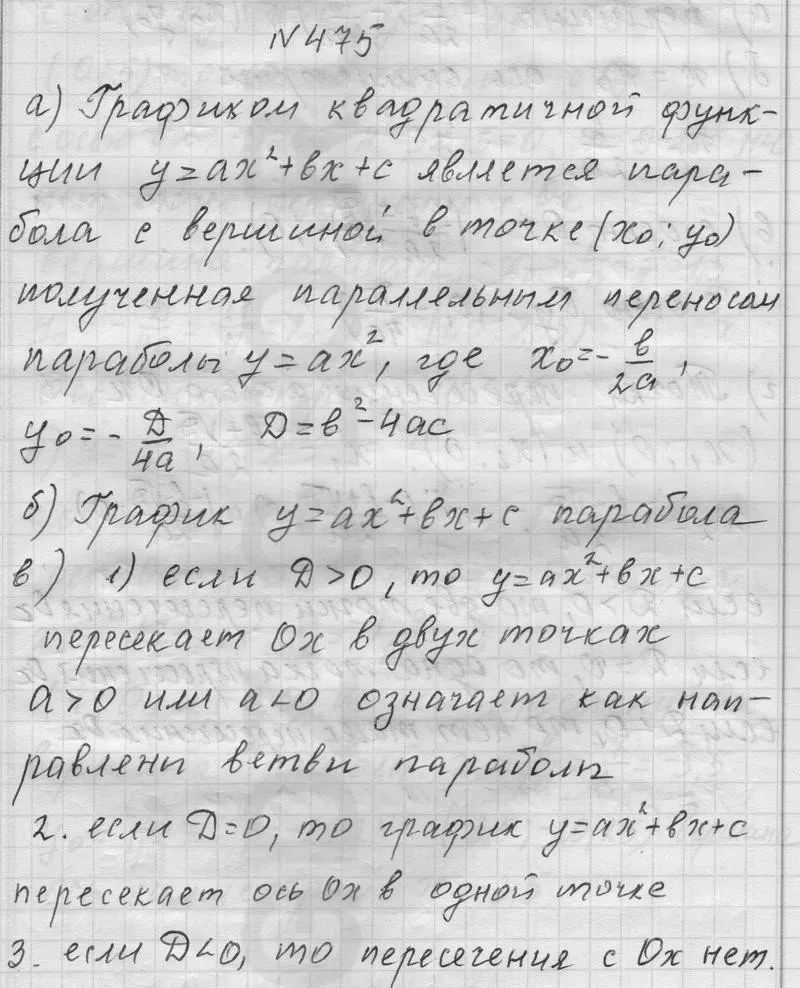 №475
а) Графиком квадратичной функ-
ции y=ax²+bx+c является пара-
бола с вершиной в точке (x₀; y₀)
полученная параллельным переносом
параболы y=ax², где x₀=-b/2a,
y₀=-D/4a, D=b²-4ac
б) График y=ax²+bx+c парабола
в) 1) если D>0, то y=ax²+bx+c
пересекает Ox в двух точках
a>0 или a<0 означает как нап-
равлены ветви параболы
2. если D=0, то график y=ax²+bx+c
пересекает ось Ox в одной точке
3. если D<0, то пересечения с Ox нет.